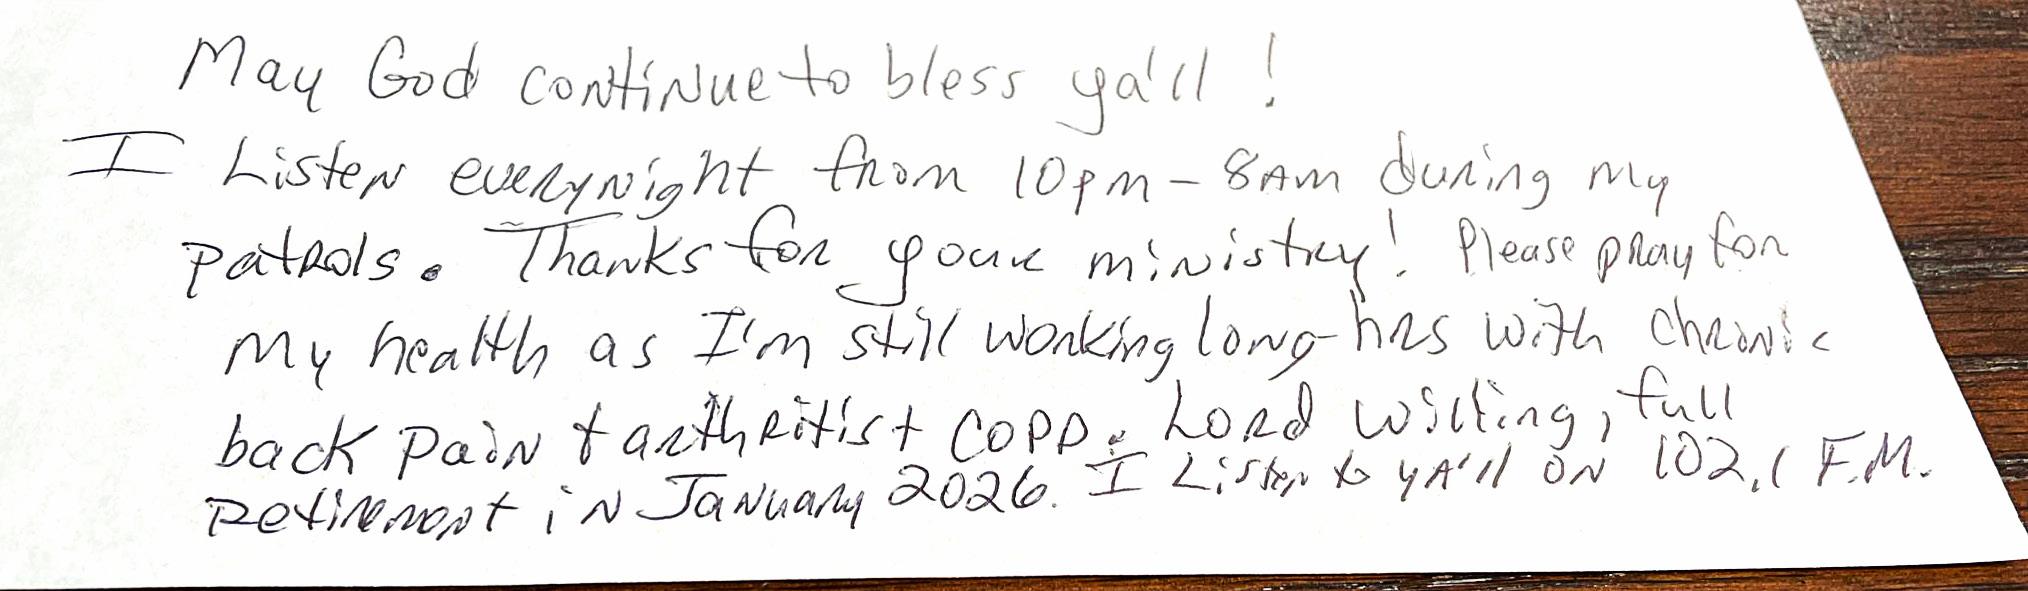 May God continue to bless ya'll!
I Listen everynight from 10pm - 8Am during my
patrols. Thanks for your ministry! Please pray for
my health as I'm still working long hrs with chronic
back pain + arthritis + COPD. Lord willing, full
Retirement in January 2026. I Listen to yA'll ON 102.1 F.M.